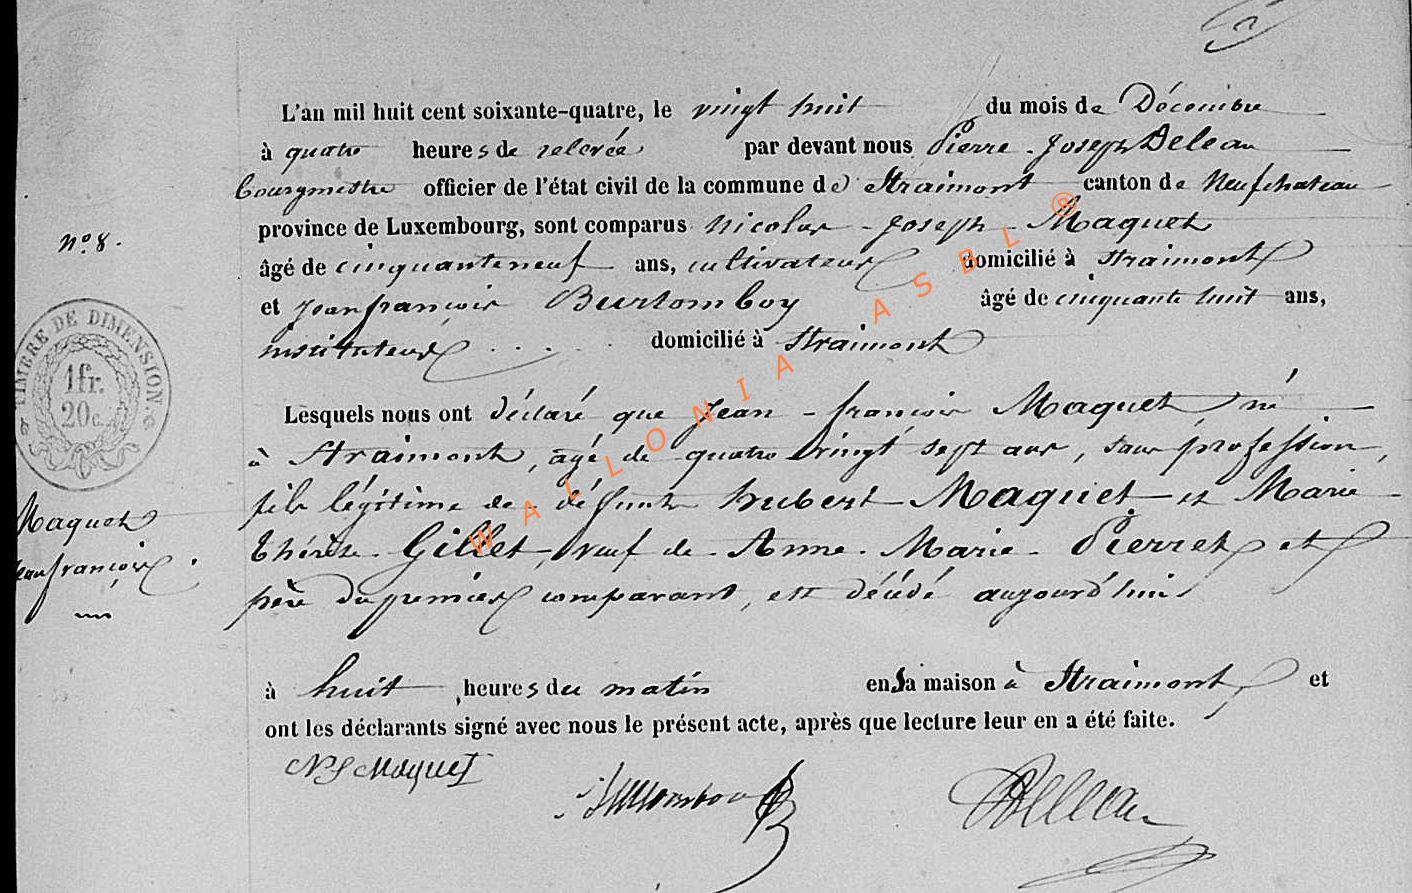 L'an mil huit cent soixante-quatre, le vingt huit du mois de Décembre
à quatre heures de relevée par devant nous Pierre-Joseph Deleau
bourgmestre officier de l'état civil de la commune de Straimont canton de Neufchateau
province de Luxembourg, sont comparus Nicolas-Joseph-Maquet
âgé de cinquante neuf ans, cultivateur domicilié à Straimont
et Jean françois Burlomboy âgé de cinquante huit ans,
instituteur domicilié à Straimont
N° 8.
TIMBRE DE DIMENSION
1 fr.
20 c.
Lesquels nous ont déclaré que Jean-françois Maquet né
à Straimont, âgé de quatre vingt sept ans, sans profession,
fils légitime de défunts hubert Maquet et Marie
thérèse Gillet, veuf de Anne-Marie-Pierret et
père du premier comparant, est décédé aujourd'hui
Maquet
Jean françois
à huit heures du matin en sa maison à Straimont, et
ont les déclarants signé avec nous le présent acte, après que lecture leur en a été faite.
NJ Maquet
Burlomboy
Deleau
WALLONIA ASBL ®